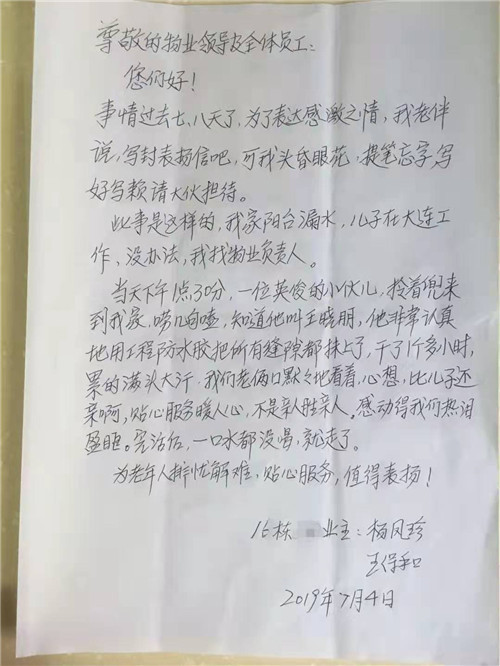 尊敬的物业领导及全体员工：
您们好！
事情过去七、八天了，为了表达感激之情，我老伴
说，写封表扬信吧，可我头昏眼花，提笔忘字，写
好写赖请大伙担待。
此事是这样的，我家阳台漏水，儿子在大连工
作，没办法，我找物业负责人。
当天下午1点30分，一位英俊的小伙儿，拎着兜来
到我家，唠几句喳，知道他叫王晓朋，他非常认真
地用工程防水胶把所有缝隙都抹上了，干了1个多小时，
累的满头大汗，我们老俩口默々地看着，心想，比儿子还
亲啊，贴心服务暖人心，不是亲人胜亲人。感动得我们热泪
盈眶。完活后，一口水都没喝，就走了。
为老年人排忧解难，贴心服务，值得表扬！
16栋 业主：杨凤珍
王得和
2019年7月4日